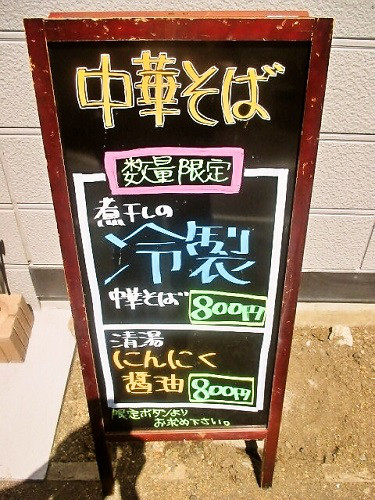 中華そば
数量限定
煮干しの
冷製
中華そば 800円
清湯
にんにく
醤油 800円
限定ボタンより
お求め下さい。